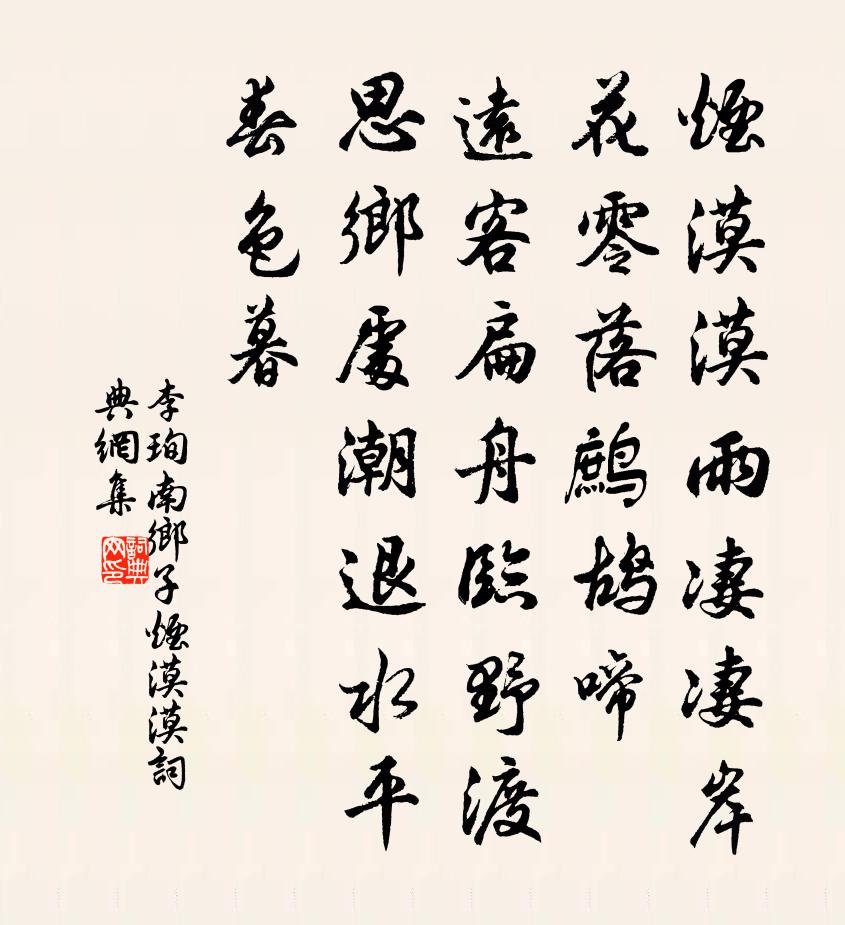 煙漠漠雨凄凄岸
花零落鷓鴣啼
遠客扁舟臨野渡
思鄉處潮退水平
春色暮
李珣南鄉子煙漠漠詞
典網集
詞典
网印